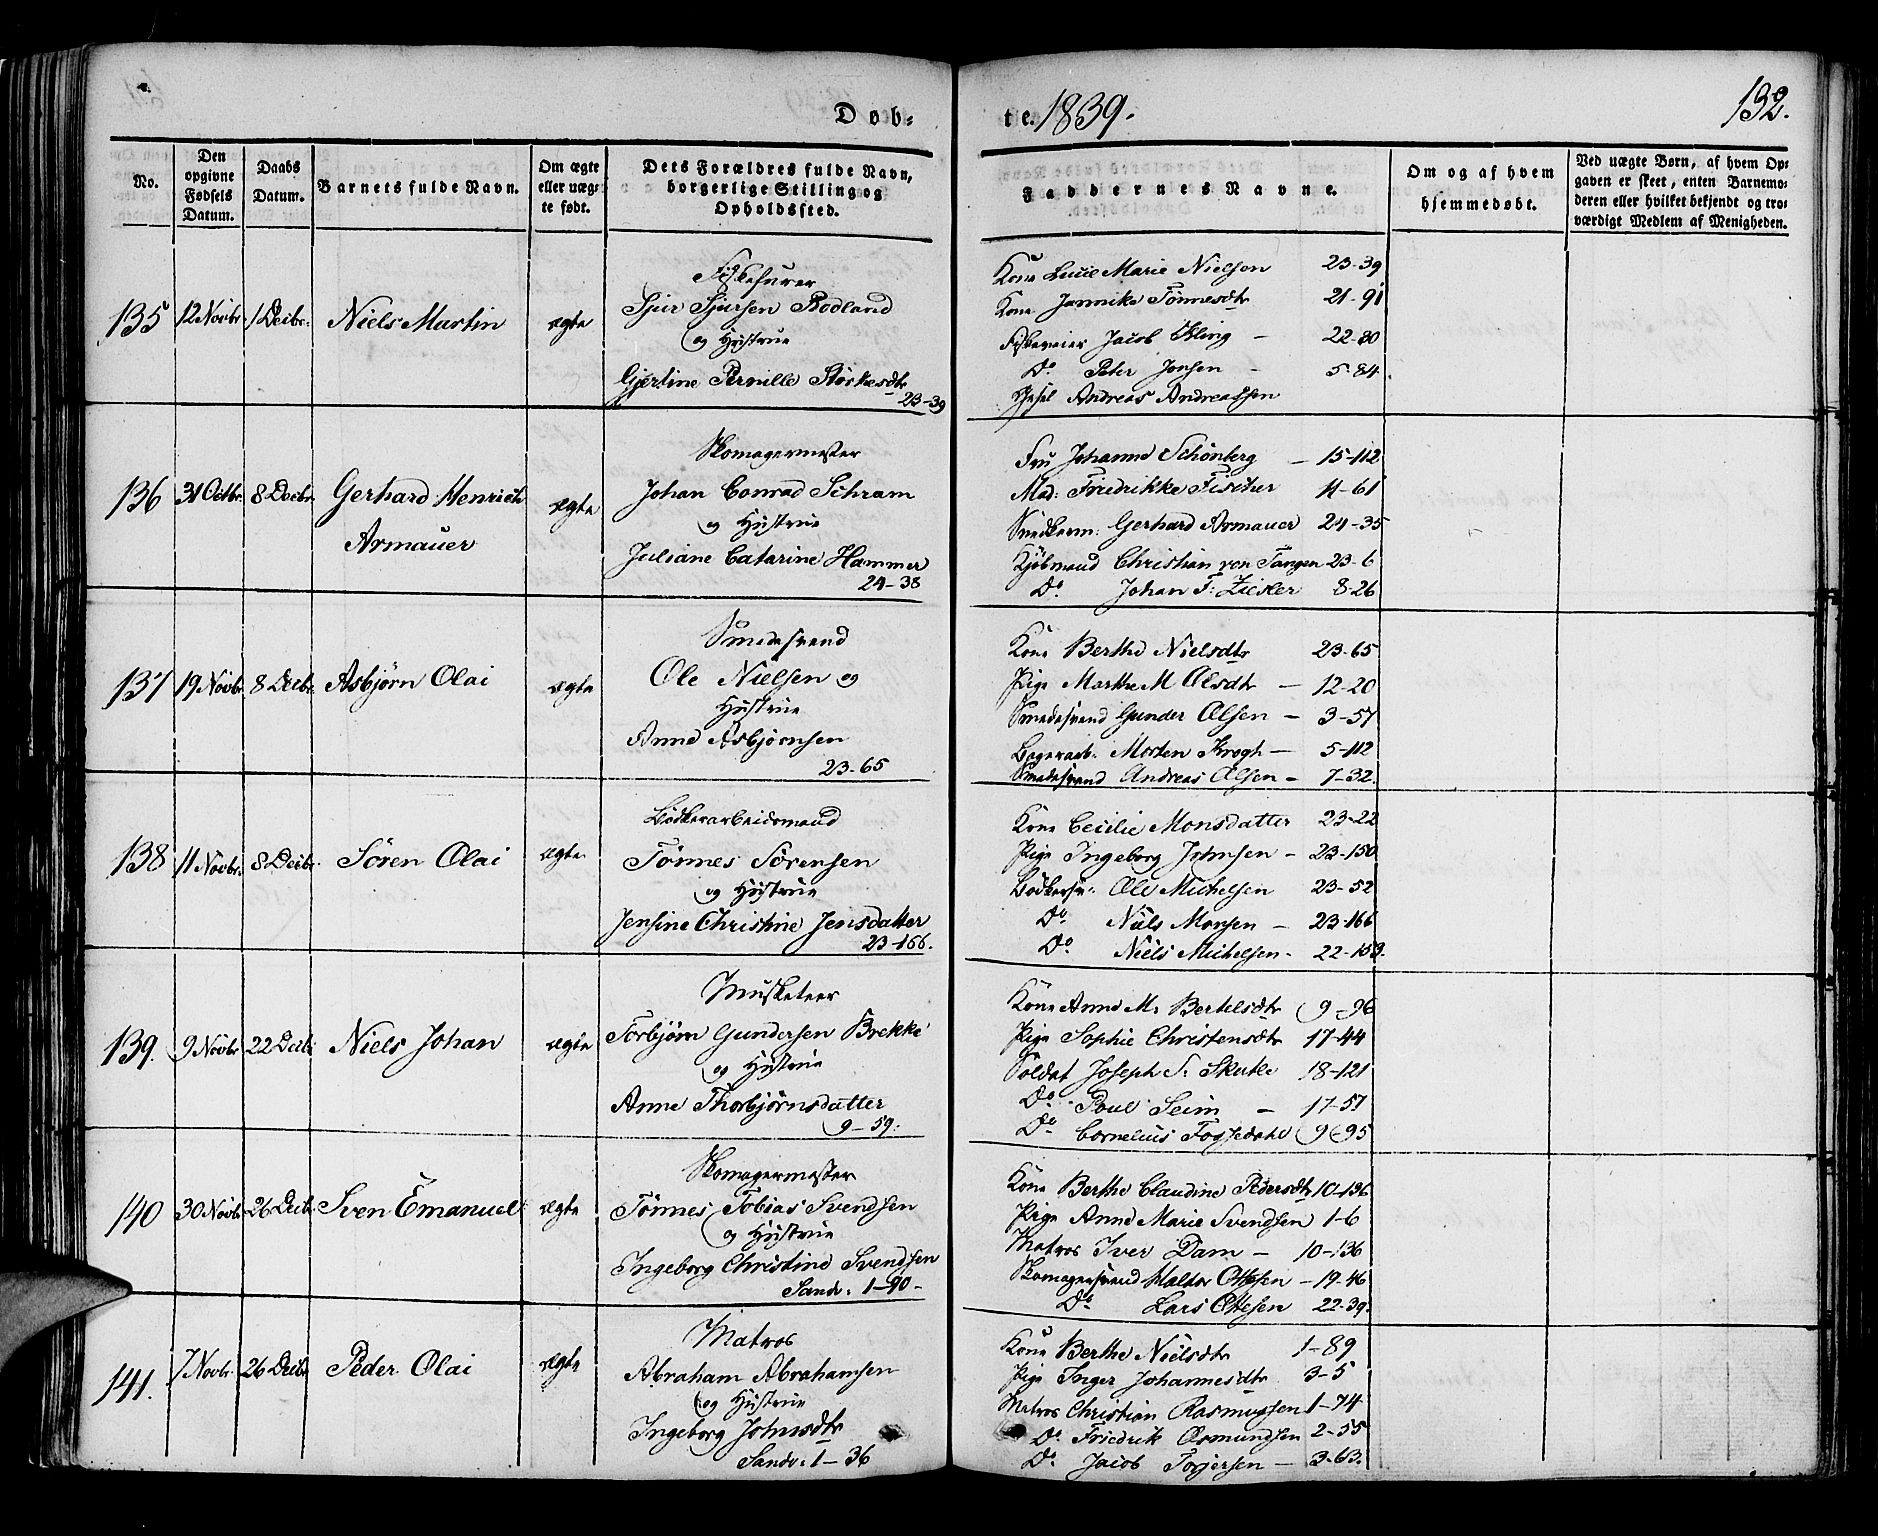 Døb- te. 1839. 132.
No.
Den opgivne Fødsels Datum.
Daabs Datum.
Barnets fulde Navn.
Om ægte eller uægte født.
Dets Forældres fulde Navn, borgerlige Stilling og Opholdssted.
Faddernes Navne.
Om og af hvem hjemmedøbt.
Ved uægte Børn, af hvem Opgaven er skeet, enten Barnemoderen eller hvilket bekjendt og troværdigt Medlem af Menigheden.
135 12 Novbr. 1 Decbr. Niels Martin ægte
Fiskefurer
Sjur Sjursen Rodland
og Hustrue
Gjertine Pernille Størkesdtr
23-39
Kone Lucie Marie Nielsen 23-39
Kone Jannike Tønnesdtr 21-91
Fiskeveier Jacob Ekling - 22-80
Do. Peter Jensen - 5-84
Andreas Andreassen
136 31 Octbr. 8 Decbr. Gerhard Henrich Armauer ægte
Skomagermester
Johan Conrad Schram
og Hustrue
Juliane Catarine Hammer
24-38
Fru Johanne Schönberg - 15-112
Mad: Fridrikke Fischer 11-61
Snedkerm: Gerhard Armauer 24-35
Kjøbmand Christian von Tangen 23-6
Do. Johan F: Ziesler 8-26
137 19 Novbr. 8 Decbr. Asbjørn Olai ægte
Smedesvend
Ole Nielsen og
Hustrue
Anne Asbjørnsen
23-65
Kone Berthe Nielsdtr 23-65
Pige Marthe M Olsdtr - 12-20
Smedesvend Gunder Olsen - 3-57
Morten Krogh - 5-112
Smedesvend Andreas Olsen - 7-32.
138 11 Novbr. 8 Decbr. Søren Olai ægte
Bødkerarbeidsmand
Tønnes Sørensen
og Hustrue
Jensine Christine Jensdatter
23-166.
Kone Cecilie Monsdatter 23-22
Pige Ingeborg Johnsen - 23-150
Bødkersv: Ole Michelsen 23-52
Do. Niels Monsen - 23-166
Do. Niels Michelsen - 22-159.
139. 9 Novbr 22 Decbr Niels Johan ægte
Musketeer
Torbjørn Gundersen Brekke
og Hustrue
Anne Thorbjørnsdatter
9-59.
Kone Anne M. Bertelsdtr 9-96
Pige Sophie Christensdtr 17-44
Soldat Joseph S. Skutle 18-121
Do. Poul Seim - 17-57
Do. Cornelius Fossedahl 9-95
140 30 Novbr 26 Decbr. Sven Emanuel ægte
Skomagermester
Tønnes Tobias Svendsen
og Hustrue
Ingeborg Christine Svendsen
Sandv: 1-90-
Kone Berthe Claudine Pedersdtr 10-136
Pige Anne Marie Svendsen 1-6
Matros Iver Dam - 10-136
Skomagersvend Haldor Ottesen - 19-46
Do. Lars Ottesen 22-39.
141. 7 Novbr. 26 Decbr Peder Olai ægte
Matros
Abraham Abrahamsen
og Hustrue
Ingeborg Johnsdtr
Sandv: 1-36
Kone Berthe Nielsdtr 1-89
Pige Inger Johannesdtr 3-5
Matros Christian Rasmussen 1-74
Do. Friedrik Osmundsen 2-55
Do. Jacob Torjersen - 3-63.